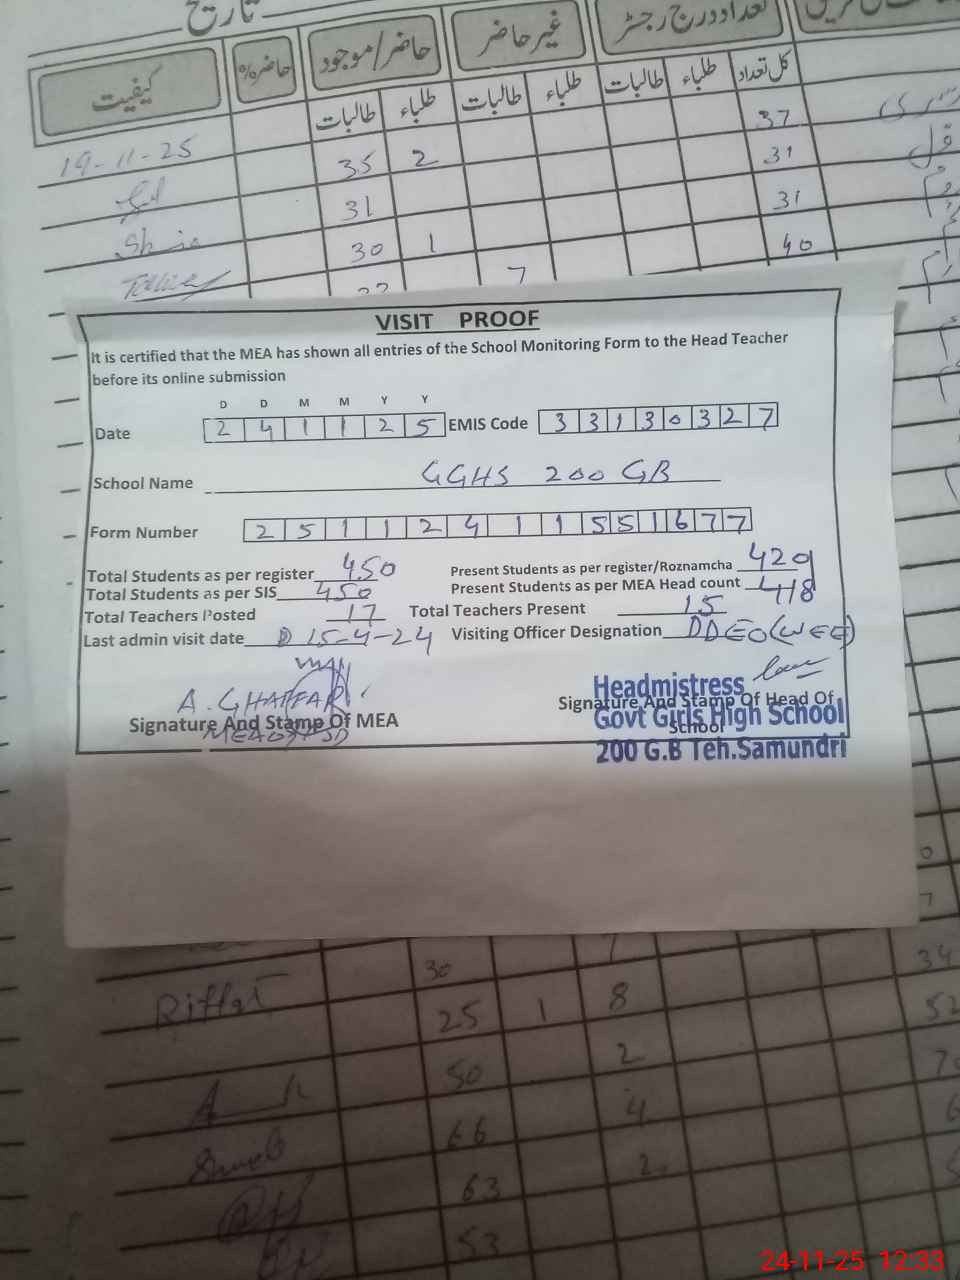 تاریخ
کیفیت حاضر% حاضر/موجود غیر حاضر تعداد درج رجسٹر
طالبات طلباء طالبات طلباء طالبات طلباء کل تعداد
19-11-25 35 2 37
31 31
30 1 31
7 40
VISIT PROOF
It is certified that the MEA has shown all entries of the School Monitoring Form to the Head Teacher
before its online submission
D D M M Y Y
Date 2 4 1 1 2 5 EMIS Code 3 3 1 3 0 3 2 7
School Name GGHS 200 GB
Form Number 2 5 1 1 2 4 1 1 5 5 1 6 7 7
Total Students as per register 450 Present Students as per register/Roznamcha 420
Total Students as per SIS 450 Present Students as per MEA Head count 418
Total Teachers Posted 17 Total Teachers Present 15
Last admin visit date 15-4-24 Visiting Officer Designation DDEO(WEE)
A. GHAFFAR
Signature And Stamp Of MEA
Signature And Stamp Of Head Of
School
Headmistress
Govt Girls High School
200 G.B Teh.Samundri
30 7 34
Riffat 25 1 8
50 2
66 4
63 2
53
24-11-25 12:33